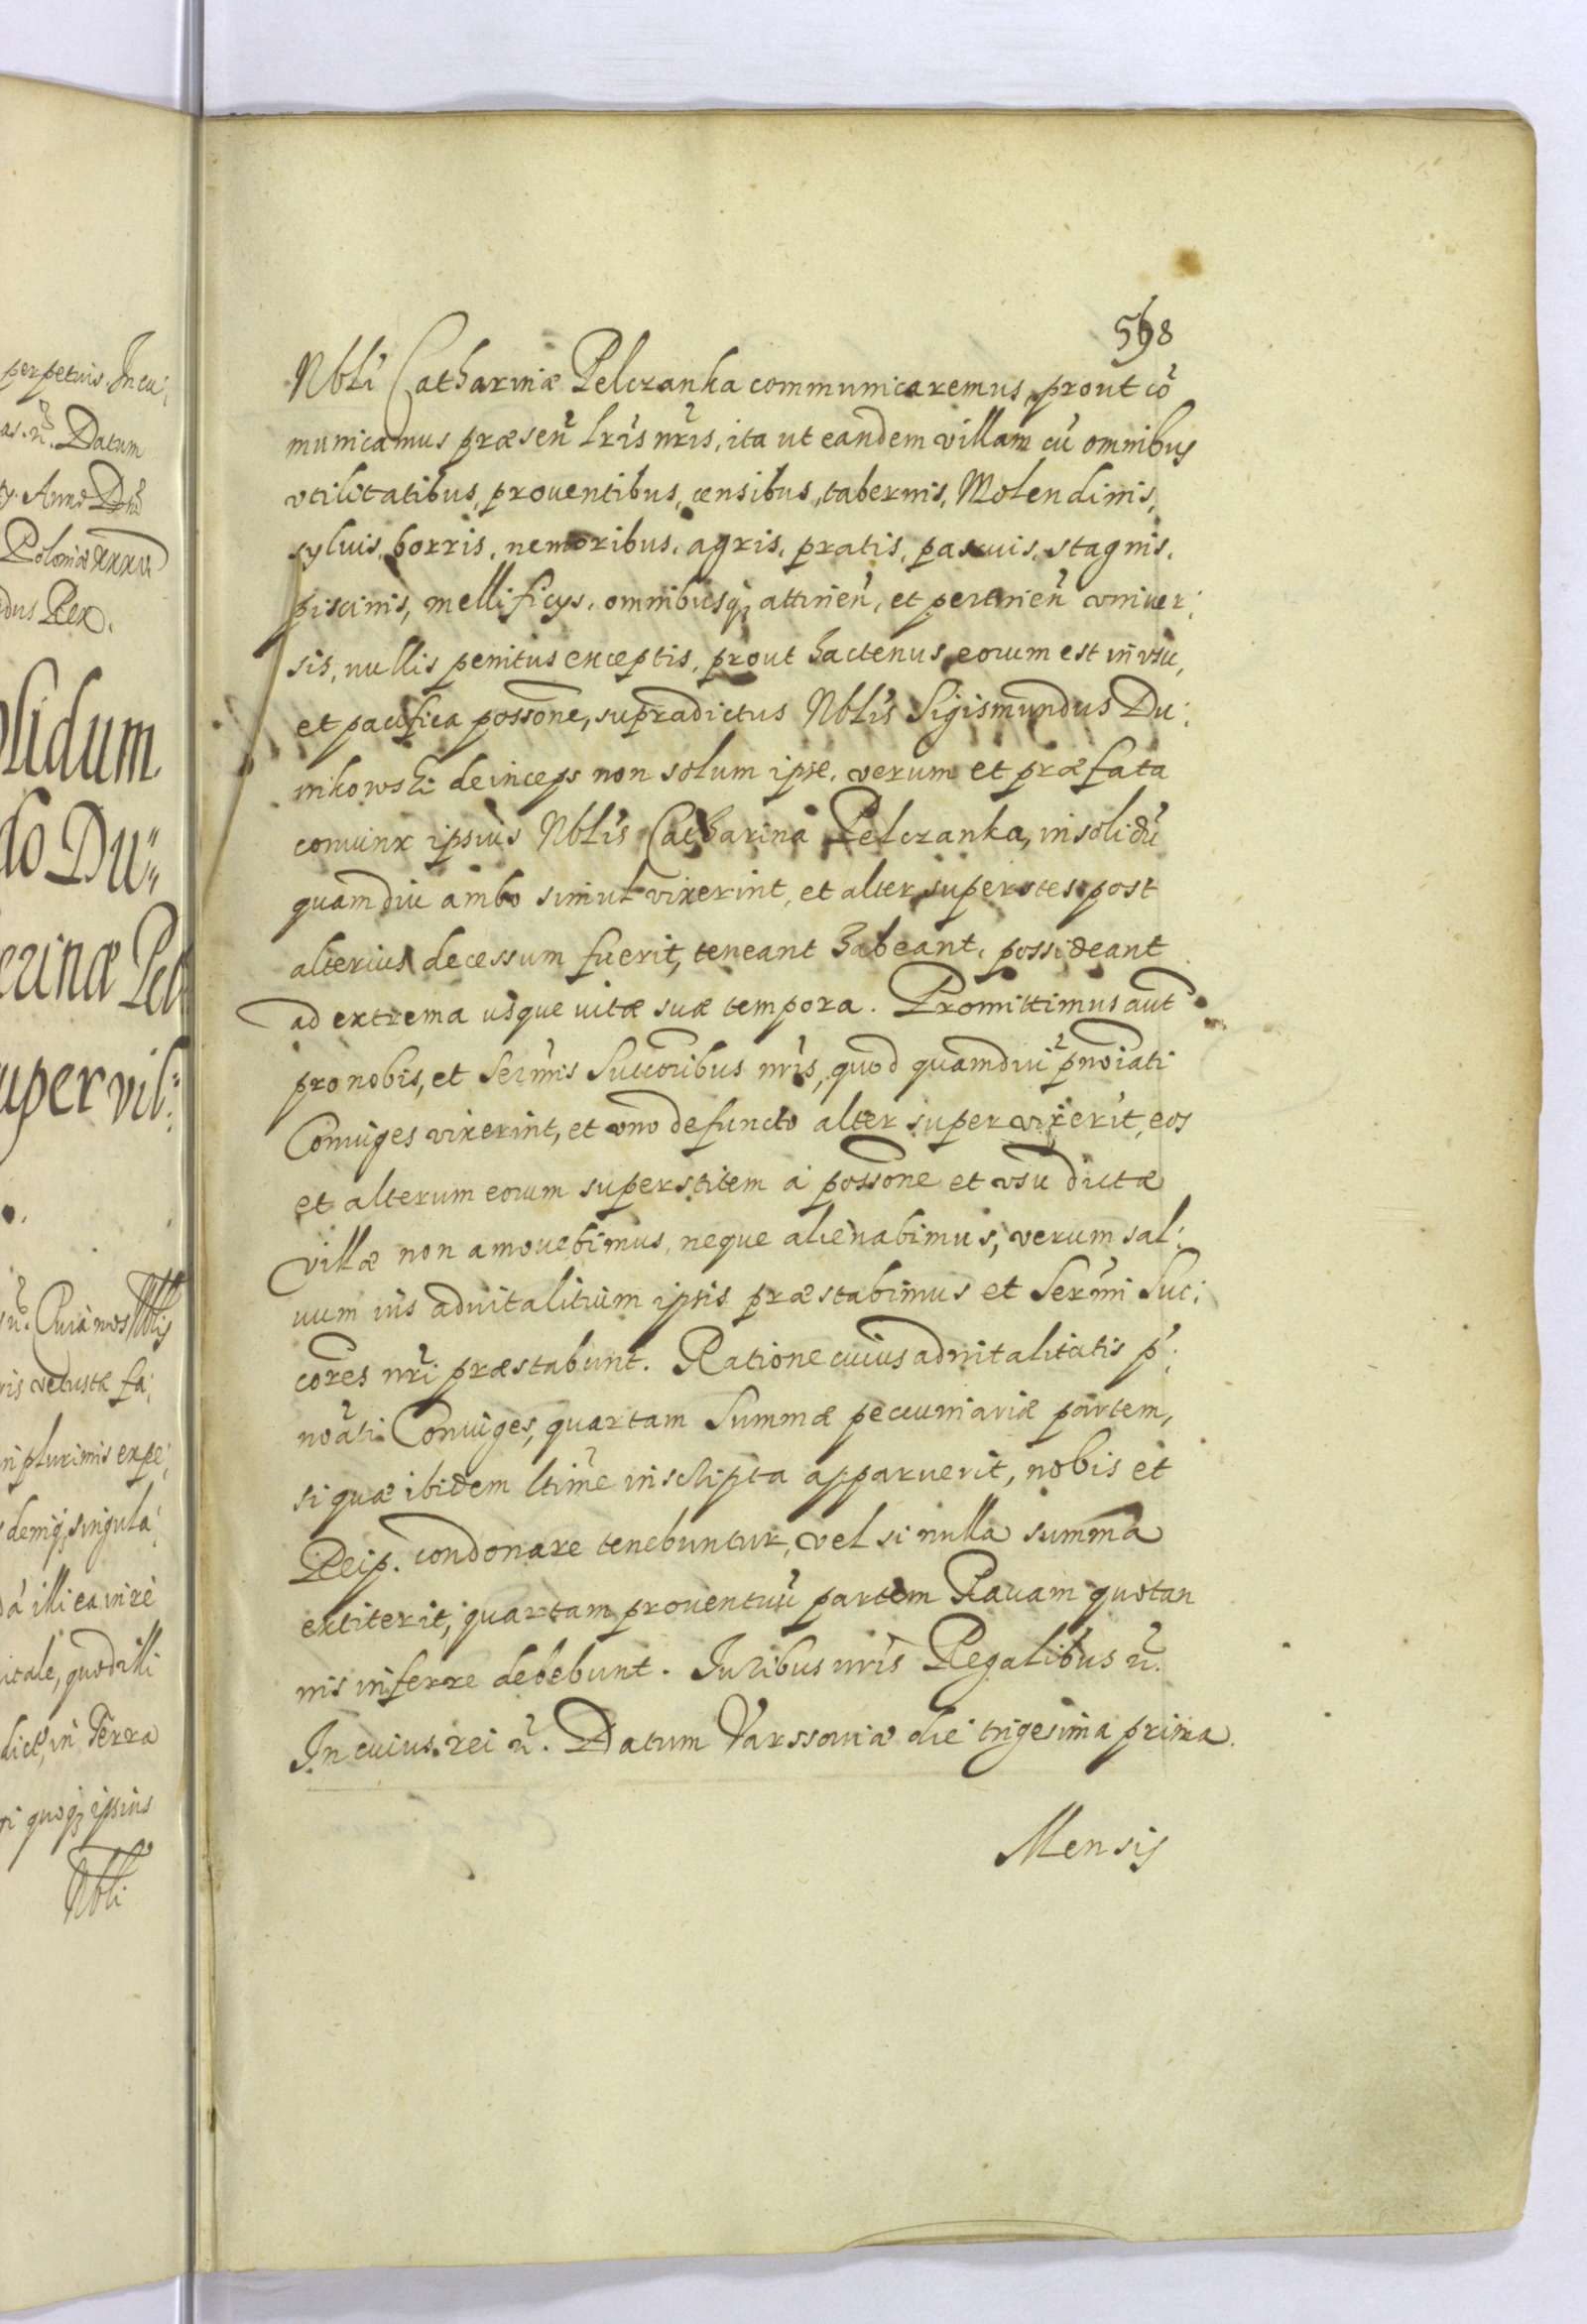 perpetuis. In cu;
as. ur̃. Datum
Anno Dni
Poloniæ XXXVI
dus Rex.
lidum
do Du„
erinæ Pel
uper vil:
Quia nos Nblis
ris vetustæ fa;
plurimis expe;
demq; singula;
à illi ea in rē
itale, quod illi
dict, in Terra
quoq; ipsius
Nbli
598
Nbli Catharinæ Pelczanka communicaremus, prout cõ
municamus præseñ lris nr̃is, ita ut eandem villam cũ omnibus
vtilitatibus, prouentibus, censibus, tabernis, Molendinis,
syluis, borris, nemoribus, agris, pratis, pascuis, stagnis,
piscinis, mellificys, omnibusq; attineñ, et pertineñ vniuer;
sis, nullis penitus exceptis, prout hactenus eorum est in vsu,
et pacifica possone, supradictus Nblis Sigismundus Du;
nikowski deinceps non solum ipse, verum et præfata
coniunx ipsius Nblis Catharina Pelczanka, in solidũ
quamdiu ambo simul vixerint, et alter superstes post
alterius decessum fuerit, teneant habeant, possideant
ad extrema usque vitæ suæ tempora. Promittimus aut
pro nobis, et Sermis Succoribus nris, quod quamdiu pnoiati
Coniuges vixerint, et vno defuncto alter supervixerit, eos
et alterum eorum superstitem à possone et vsu dictæ
villæ non amouebimus, neque alienabimus, verum sal;
uum ius aduitalitium ipsis præstabimus et Sermi Suc;
cores nr̃i præstabunt. Ratione cuius aduitalitatis p;
noãti Coniuges, quartam Summæ pecuniariæ partem,
si quæ ibidem ltime inscripta apparuerit, nobis et
Reip. condonare tenebuntur, vel si nulla summa
extiterit, quartam prouentuũ partem Rauam quotan
nis inferre debebunt. Iuribus nris Regalibus ur̃.
In cuius rei ur̃. Datum Varssouiæ die trigesima prima.
Mensis